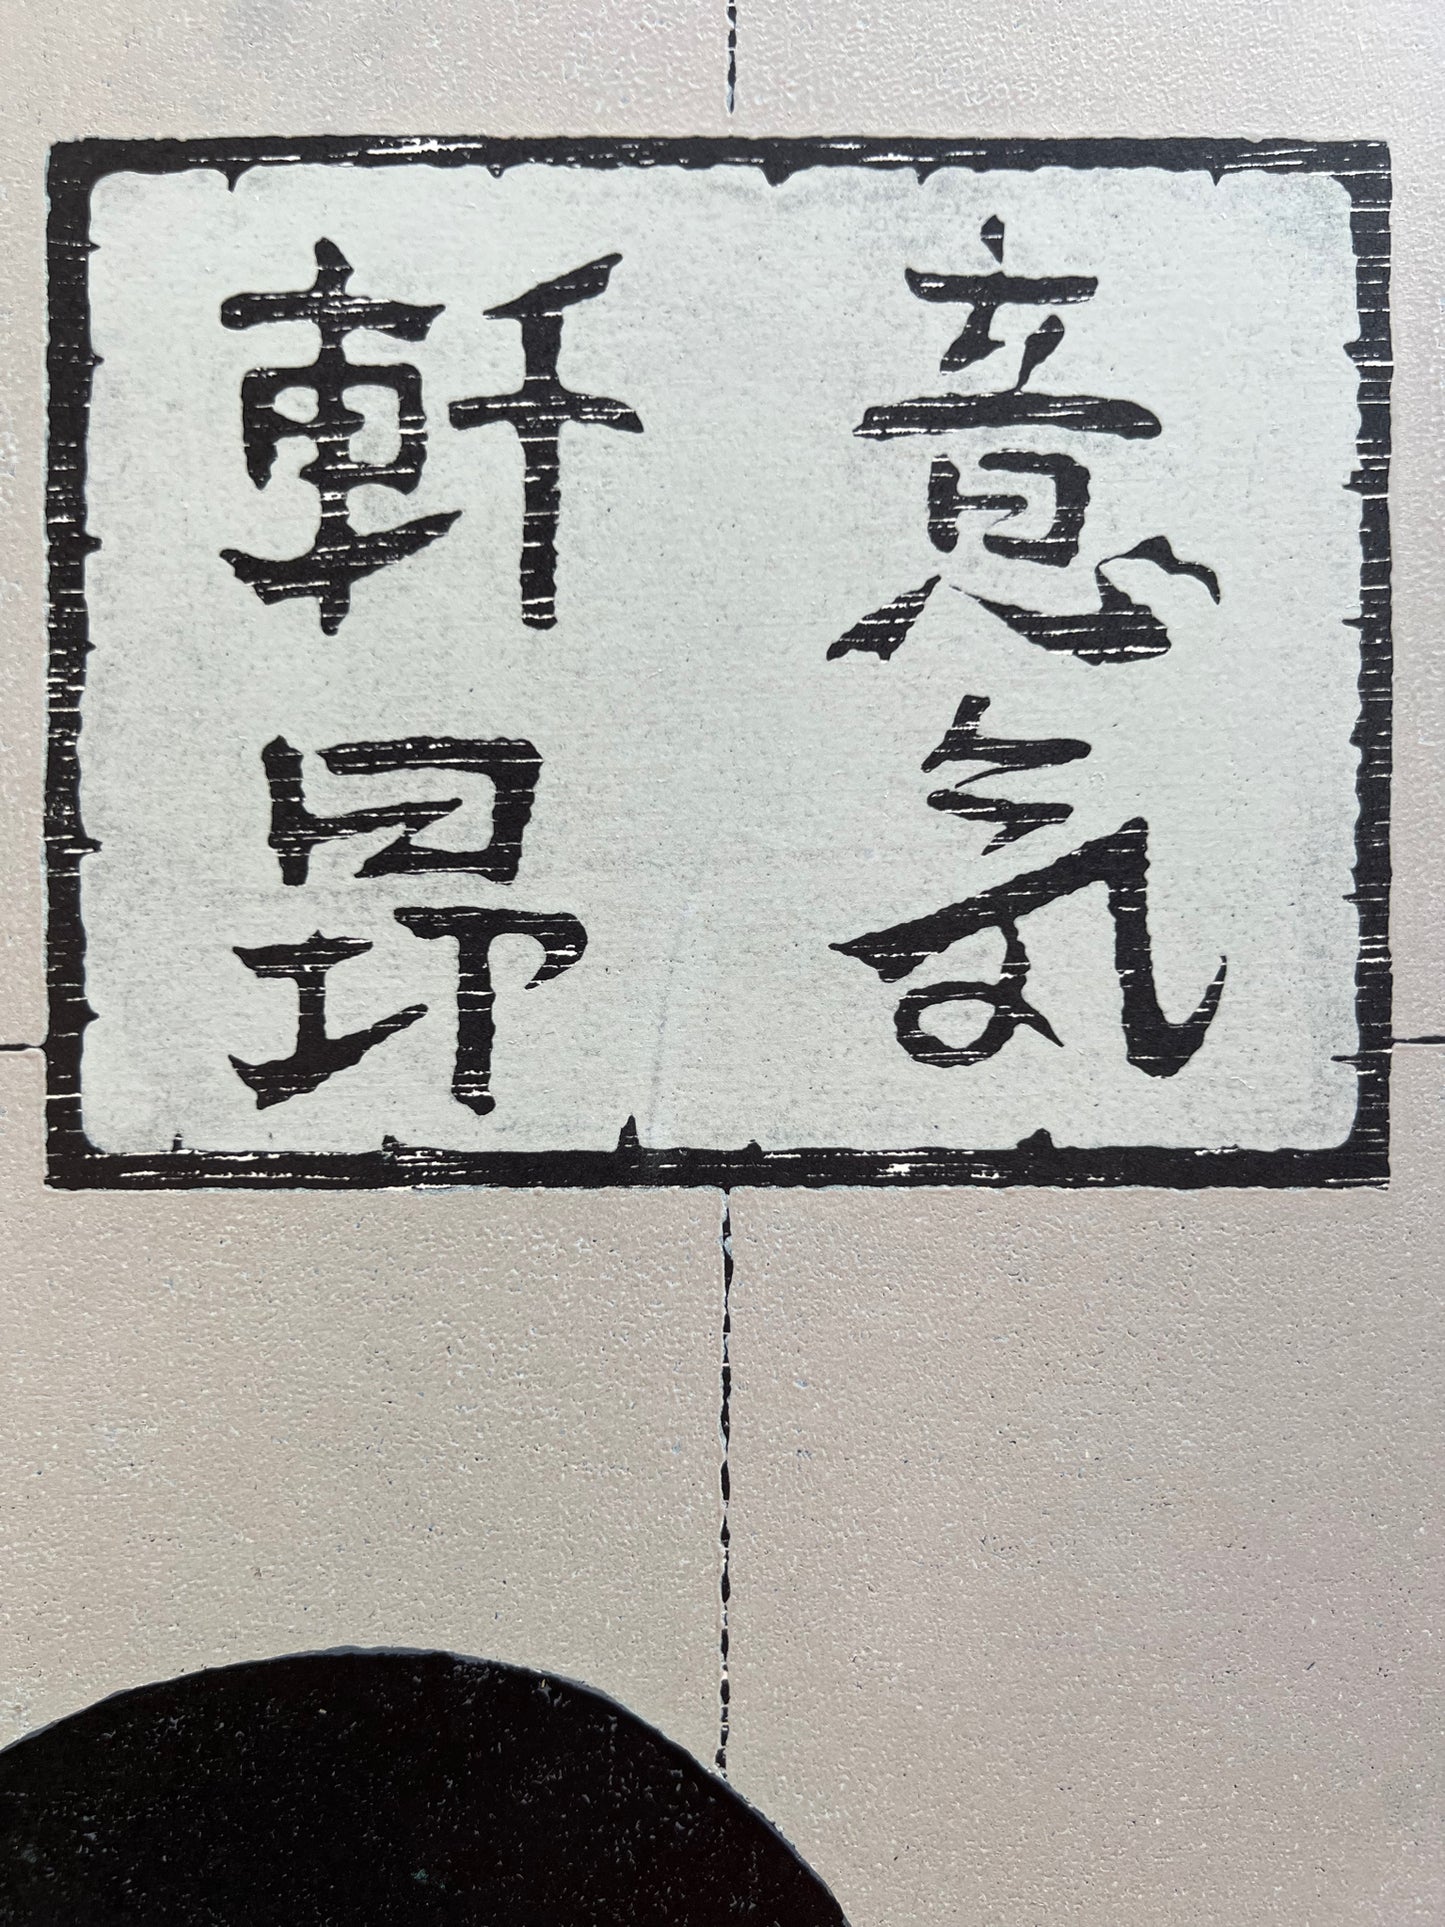 意気
軒昂